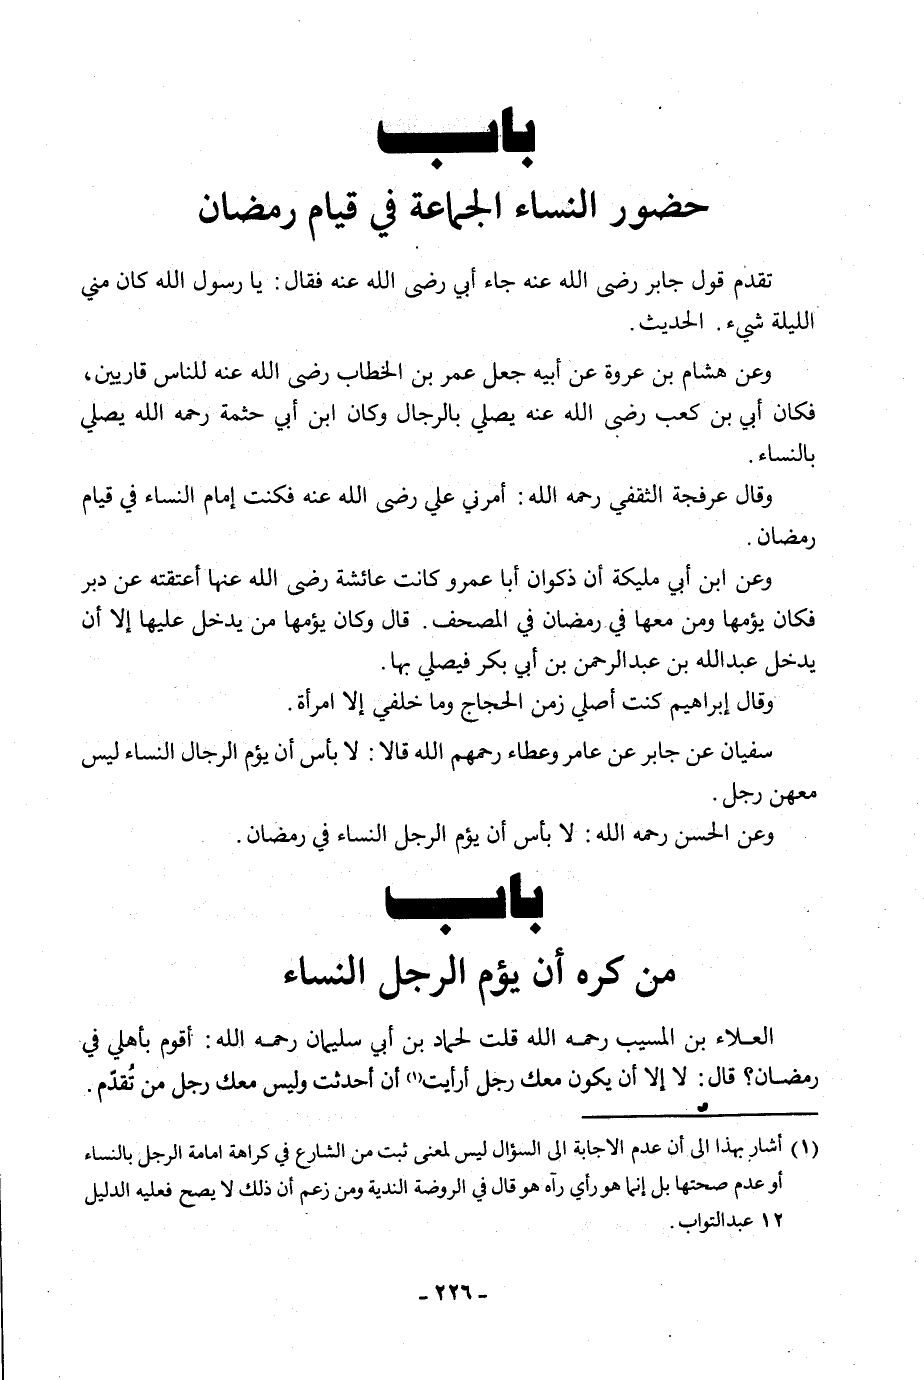 باب
حضور النساء الجماعة في قيام رمضان
تقدم قول جابر رضى الله عنه جاء أبي رضى الله عنه فقال: يا رسول الله كان مني
الليلة شيء. الحديث.
وعن هشام بن عروة عن أبيه جعل عمر بن الخطاب رضى الله عنه للناس قاريين،
فكان أبي بن كعب رضى الله عنه يصلي بالرجال وكان ابن أبي حثمة رحمه الله يصلي
بالنساء.
وقال عرفجة الثقفي رحمه الله: أمرني علي رضى الله عنه فكنت إمام النساء في قيام
رمضان.
وعن ابن أبي مليكة أن ذكوان أبا عمرو كانت عائشة رضى الله عنها أعتقته عن دبر
فكان يؤمها ومن معها في رمضان في المصحف. قال وكان يؤمها من يدخل عليها إلا أن
يدخل عبدالله بن عبدالرحمن بن أبي بكر فيصلي بها.
وقال إبراهيم كنت أصلي زمن الحجاج وما خلفي إلا امرأة.
سفيان عن جابر عن عامر وعطاء رحمهم الله قالا: لا بأس أن يؤم الرجال النساء ليس
معهن رجل.
وعن الحسن رحمه الله: لا بأس أن يؤم الرجل النساء في رمضان.
باب
من كره أن يؤم الرجل النساء
العلاء بن المسيب رحمه الله قلت لحماد بن أبي سليمان رحمه الله: أقوم بأهلي في
رمضان؟ قال: لا إلا أن يكون معك رجل أرأيت(١) أن أحدثت وليس معك رجل من تُقدّم.
(١) أشار بهذا الى أن عدم الاجابة الى السؤال ليس لمعنى ثبت من الشارع في كراهة امامة الرجل بالنساء
أو عدم صحتها بل إنما هو رأي رآه هو قال في الروضة الندية ومن زعم أن ذلك لا يصح فعليه الدليل
١٢ عبدالتواب.
- ٢٢٦ -